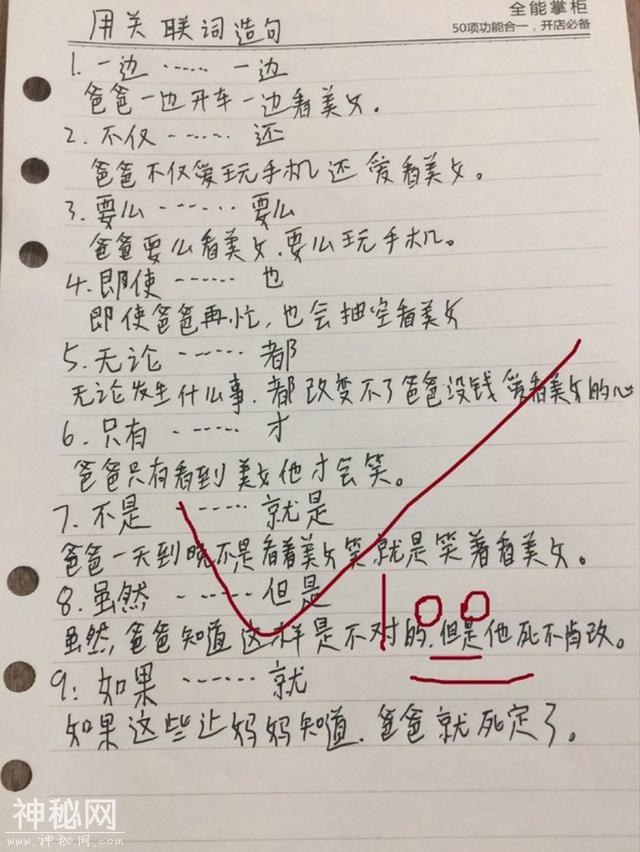 全能掌柜
50项功能合一，开店必备
用关联词造句
1. 一边 …… 一边
爸爸一边开车一边看美女.
2. 不仅 …… 还
爸爸不仅爱玩手机还爱看美女。
3. 要么 …… 要么
爸爸要么看美女.要么玩手机。
4. 即使 …… 也
即使爸爸再忙，也会抽空看美女
5. 无论 …… 都
无论发生什么事.都改变不了爸爸没钱爱看美女的心
6. 只有 …… 才
爸爸只有看到美女他才会笑。
7. 不是 …… 就是
爸爸一天到晚不是看着美女笑就是笑着看美女。
8. 虽然 …… 但是
虽然，爸爸知道这样是不对的.但是他死不肯改。
9: 如果 …… 就
如果这些让妈妈知道.爸爸就死定了。
100
神秘网
www.神秘网.com